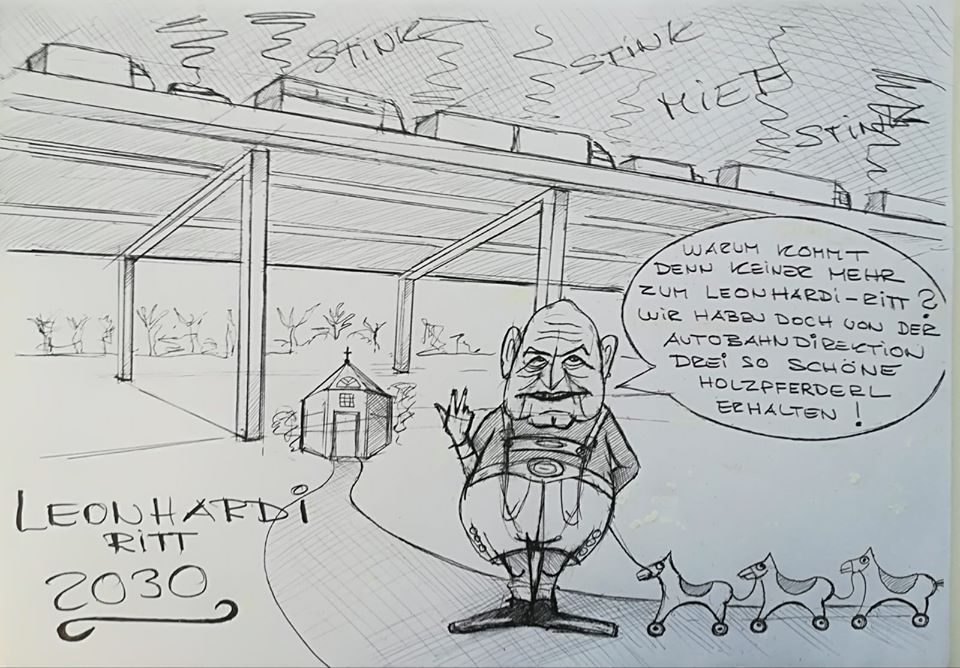 STINK
STINK
MIEF
STINK
WARUM KOMMT
DENN KEINER MEHR
ZUM LEONHARDI-RITT?
WIR HABEN DOCH VON DER
AUTOBAHNDIREKTION
DREI SO SCHÖNE
HOLZPFERDERL
ERHALTEN!
LEONHARDI
RITT
2030